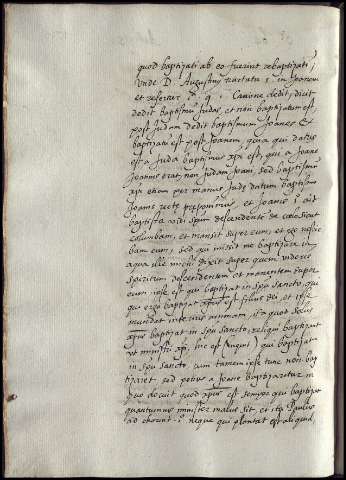 quod baptizati ab eo fuerint rebaptizati;
Unde D. Augustinus tractatu 5. in Joanem
et refertur i. q. i. Canone dedit, dicit
dedit baptismum Judas, et non baptizatum est
post Judam dedit baptismum Joanes et
baptizatum est post Joanem, quia qui datus
est a Juda baptismus xpi est, qui a Joane
Joannis erat, non Judam Joani, sed baptismum
xpi etiam per manus Jude datum baptismo
Joanis recte preponimus et Joanis i ait
baptista vidi spm descendentem de coelo sicut
columbam, et mansit super eum, et ego nescie
bam eum, sed qui misit me baptizare in
aqua ille mihi dixit super quem videris
spiritum descendentem et manentem super
eum ipse est qui baptizat in spu sancto, qui
qui ergo baptizat filius Dei, et ipse
interius animam, quod solus
xpus baptizat in spu sancto, reliqui baptizant
ut ministri xpi, hic est (inquit) qui baptizat
in spu sancto cum tamen ipse tunc non bap
tizaret, sed potius a Joane baptizaretur in
quo docuit quod xpus est semper qui baptizat
quantumvis minister malus sit, et ita Paulus
ad chorint. i. neque qui plantat est aliquid,